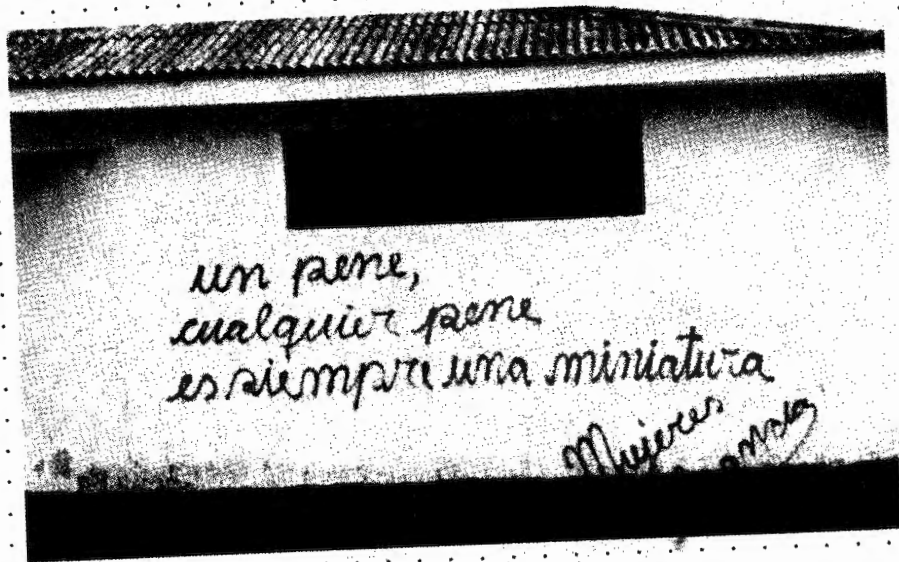 un pene,
cualquier pene
es siempre una miniatura
Mujeres